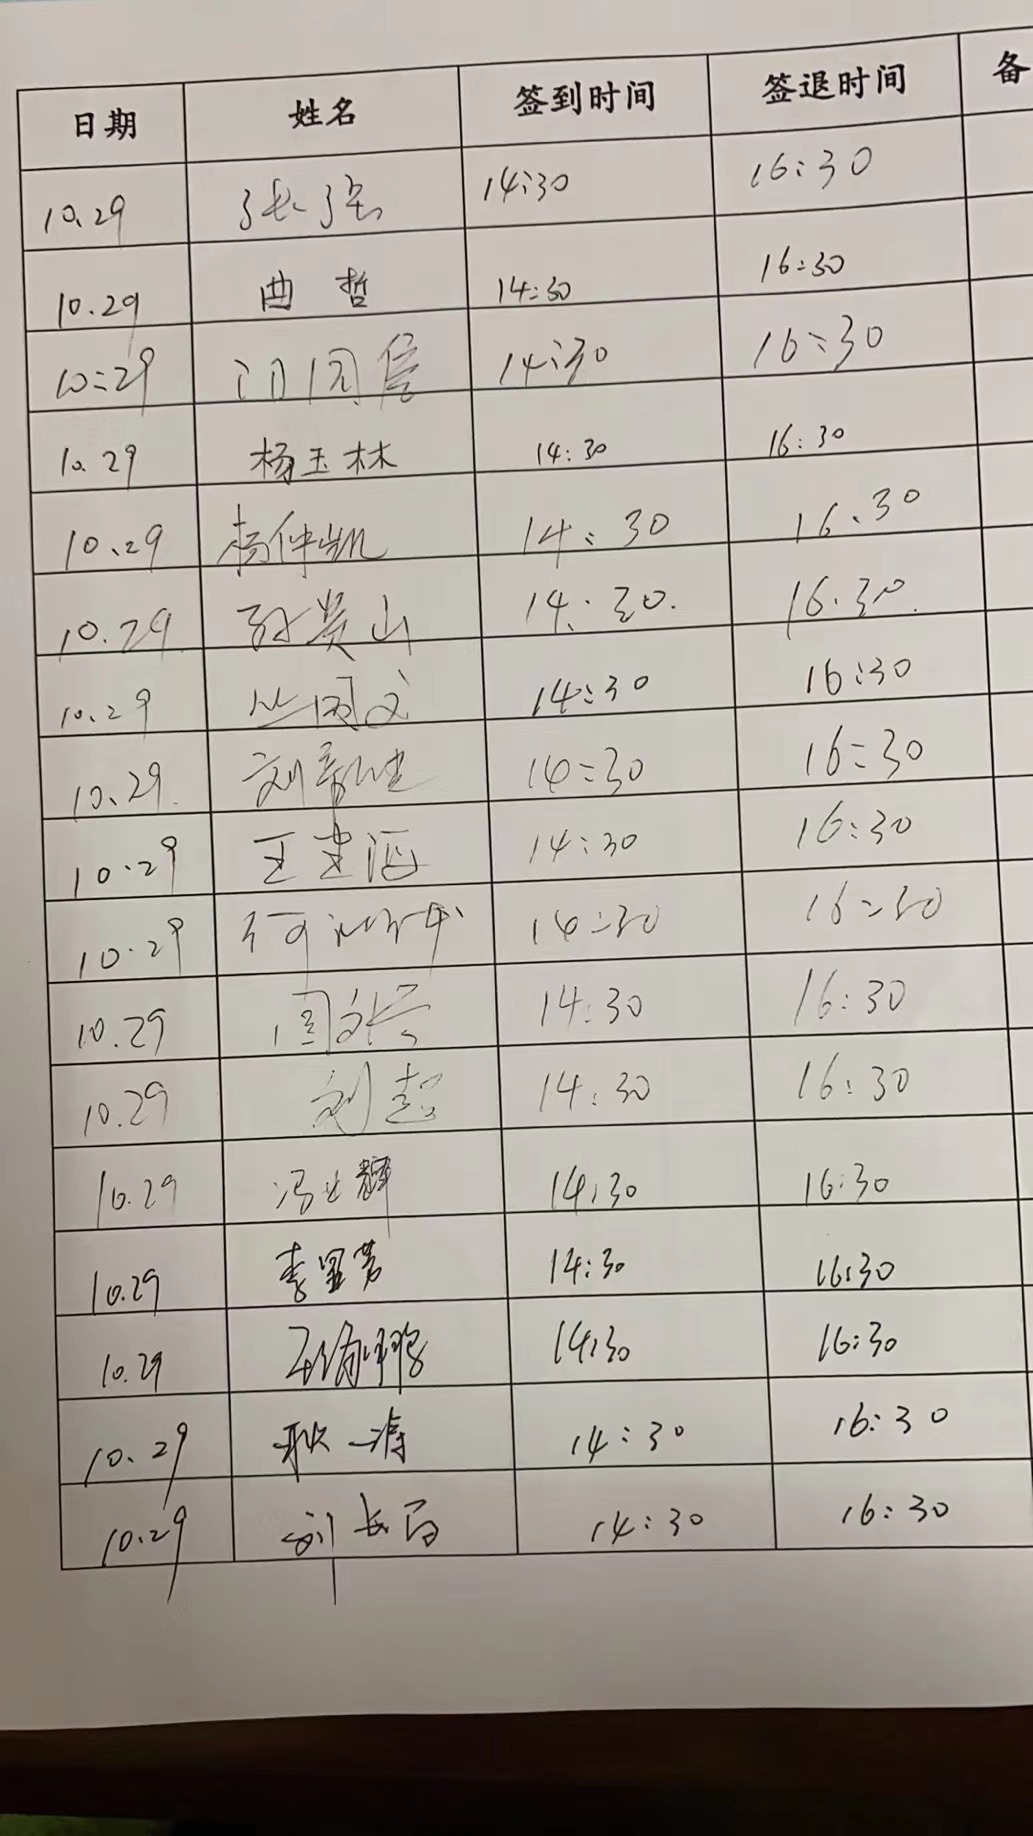 日期 姓名 签到时间 签退时间 备
10.29 张强 14:30 16:30
10.29 曲哲 14:30 16:30
10:29 14:30 16:30
10.29 杨玉林 14:30 16:30
10.29 杨仲凯 14:30 16:30
10.29 孙英山 14:30 16:30
10.29 丛因文 14:30 16:30
10.29 14:30 16:30
10.29 14:30 16:30
10.29 14:30 16:30
10.29 14:30 16:30
10.29 刘超 14:30 16:30
10.29 14:30 16:30
10.29 14:30 16:30
10.29 14:30 16:30
10.29 14:30 16:30
10.29 14:30 16:30